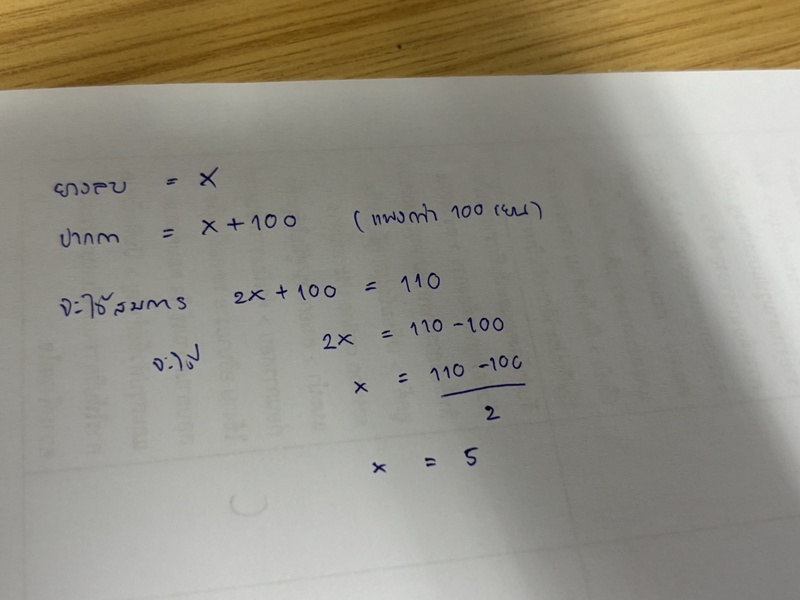 ยางลบ = x
ปากกา = x + 100 (แพงกว่า 100 เยน)
จะใช้สมการ 2x + 100 = 110
จะได้ 2x = 110 - 100
x = 110 - 100 / 2
x = 5